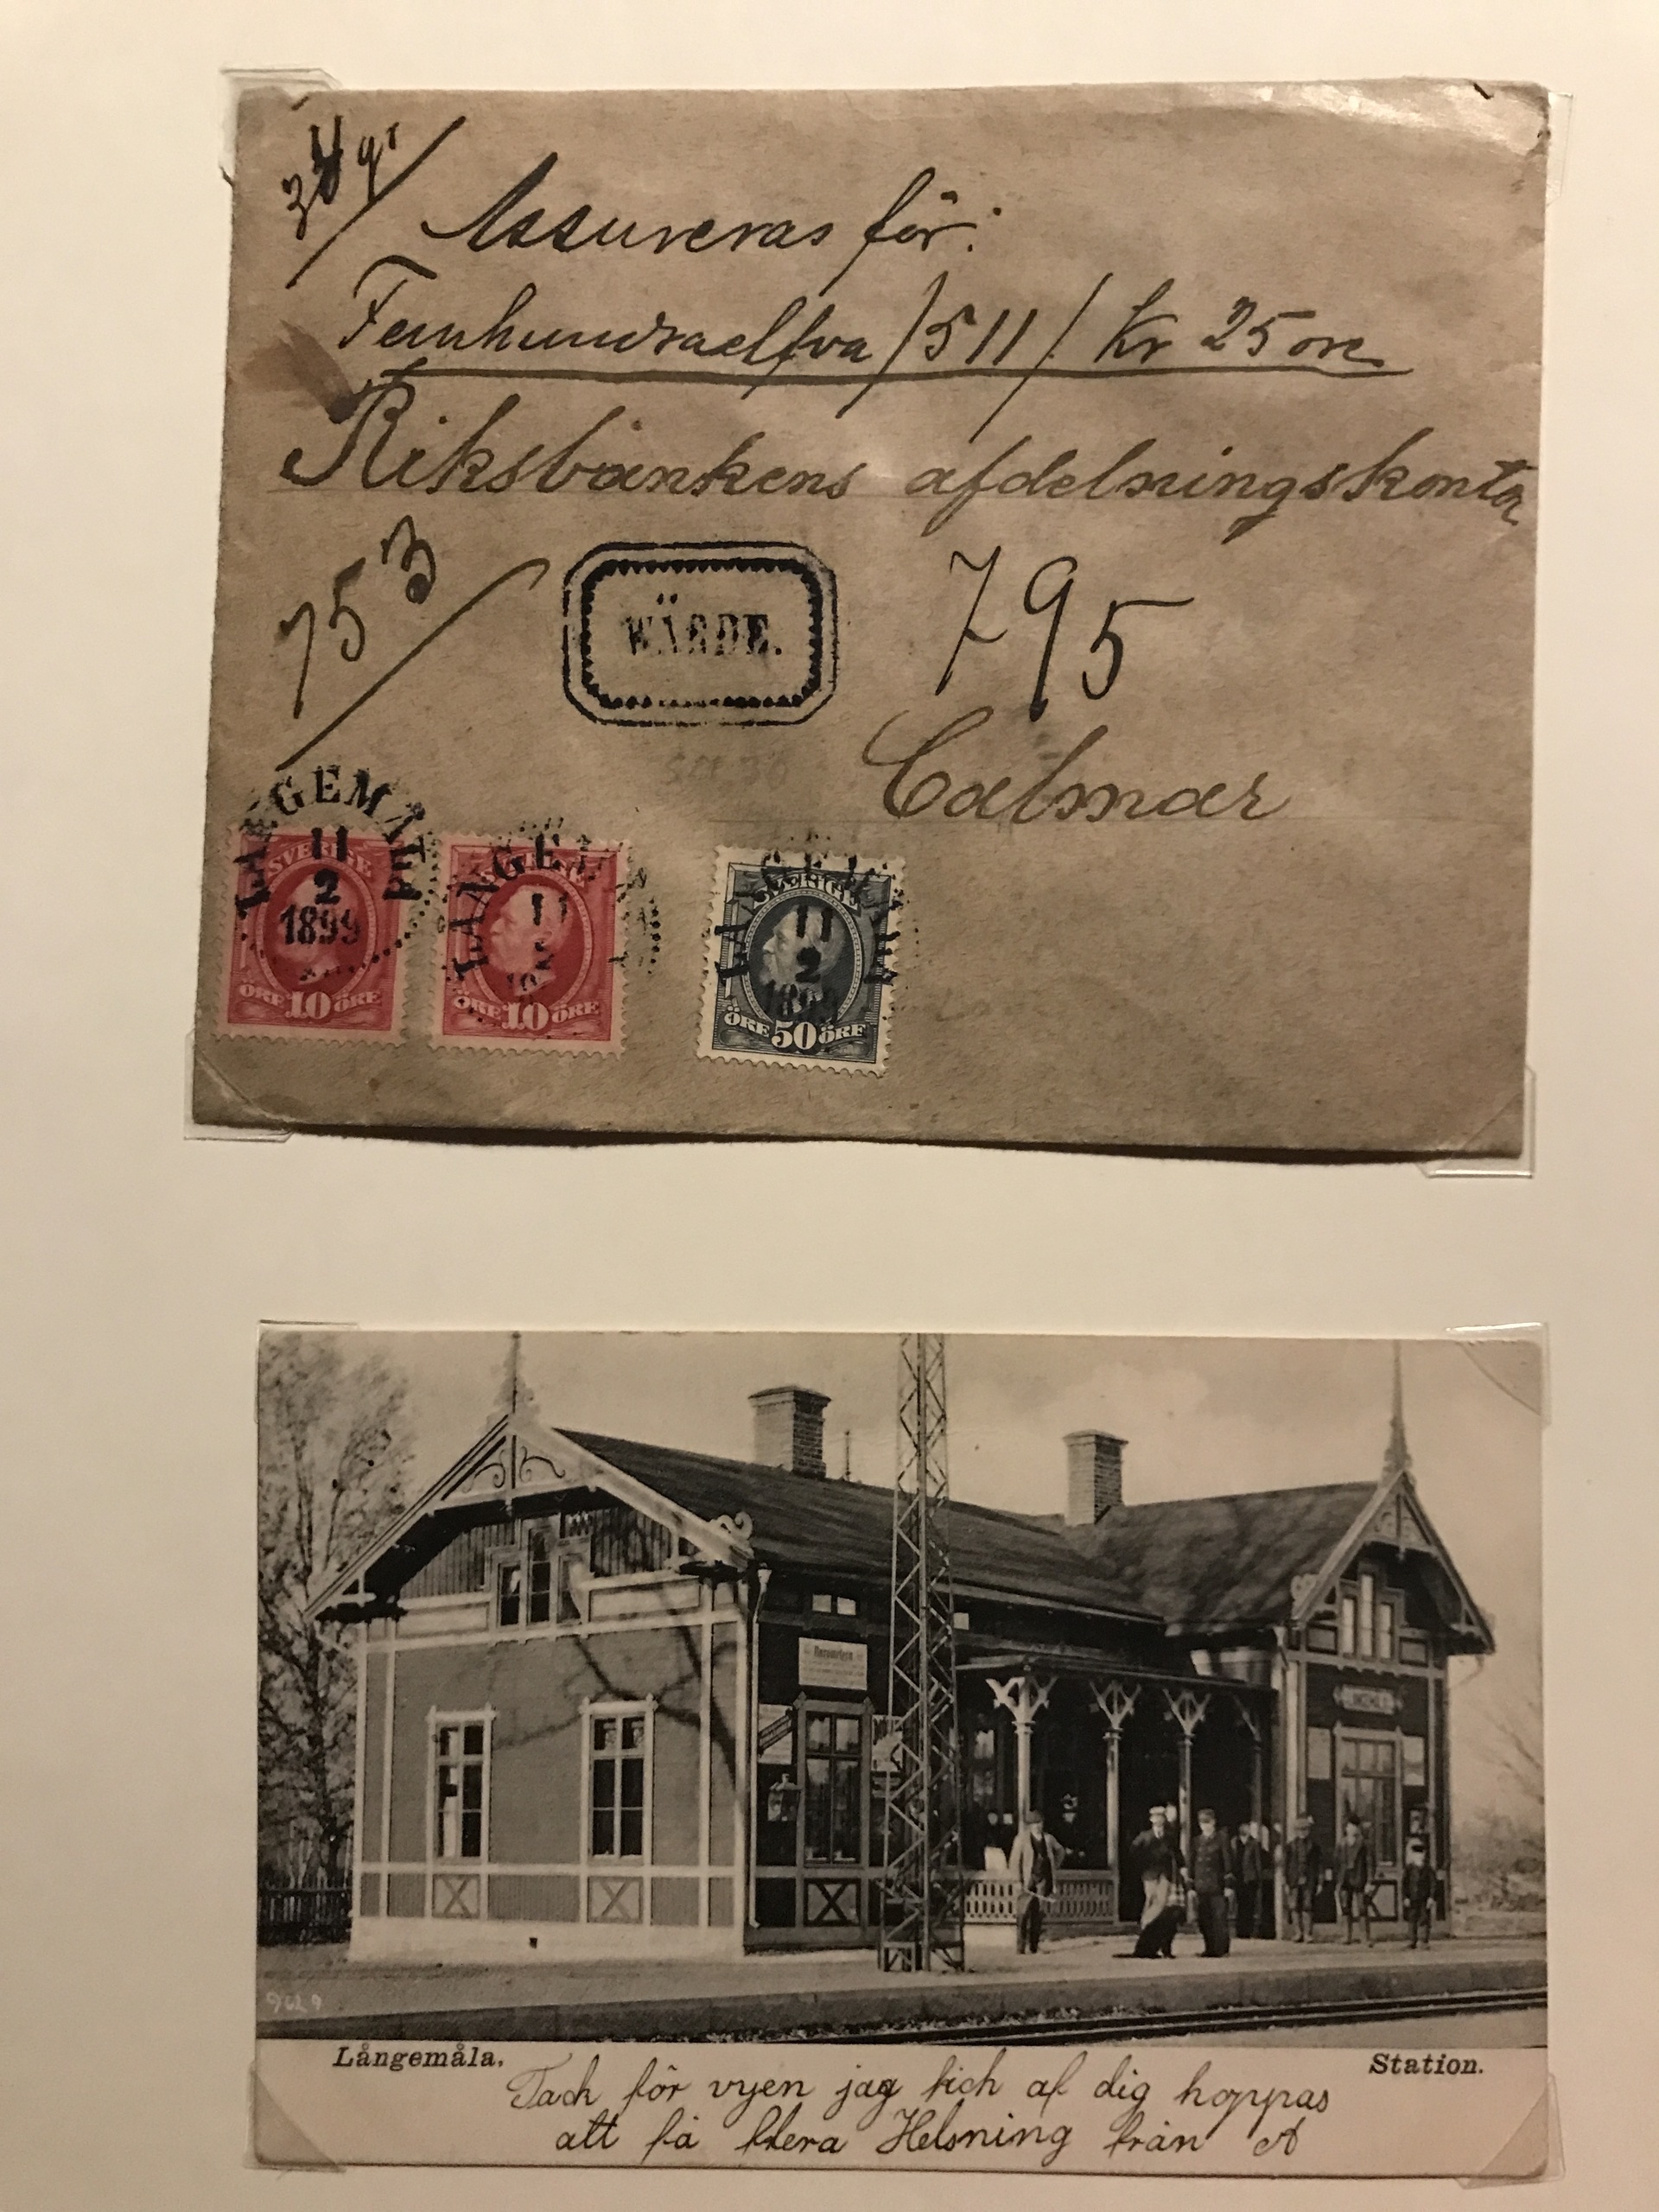 Assureras för:
Femhundraelfva /511/ Kr 25 öre
Riksbankens afdelningskontor
753
WÄRDE.
795
Calmar
LÅNGEMÅLA
11
2
1899
SVERIGE
ÖRE 10 ÖRE
LÅNGEM
11
ÖRE 10 ÖRE
SVERIGE
11
2
ÖRE 50 ÖRE
Långemåla.
Station.
Tack för vyen jag fick af dig hoppas
att få flera Helsning från A